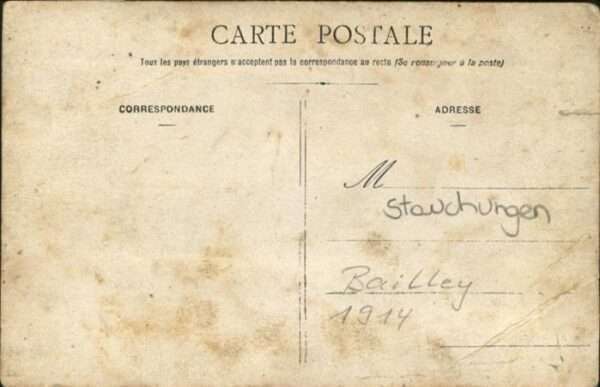 CARTE POSTALE
Tous les pays étrangers n'acceptent pas la correspondance au recto (Se renseigner à la poste)
CORRESPONDANCE
ADRESSE
M
Stauchungen
Bailley
1914